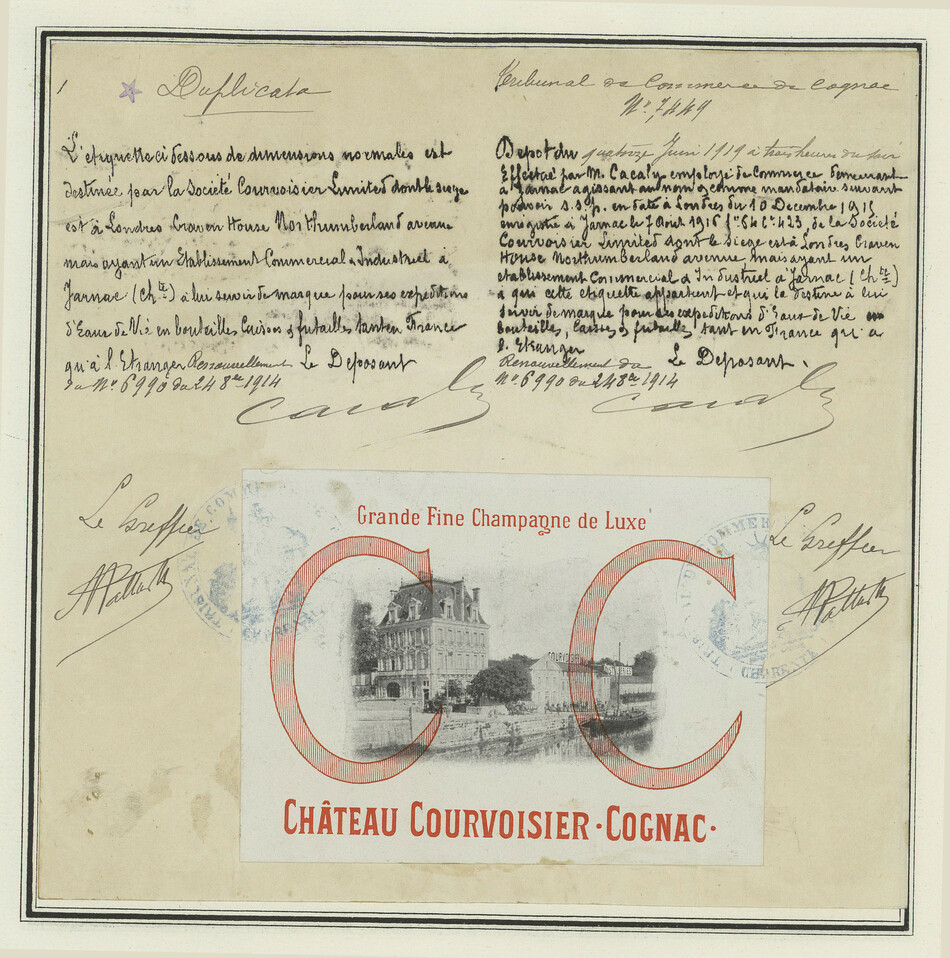 1
Duplicata
L'etiquette ci dessous de dimensions normales est
destinée par la Société Courvoisier Limited dont le siege
est à Londres Craven House Northumberland avenue
mais ayant un Etablissement Commercial & Industriel à
Jarnac (Chte) à lui servir de marque pour ses expeditions
d'Eaux de Vie en bouteilles Caisses & futailles tant en France
qu'à l'Etranger Renouvellement Le Deposant
du No 6990 du 24 8bre 1914
Tribunal de Commerce de Cognac
No 7449
Depot du quatorze Juin 1919 à trois heures du soir
Effectué par M. Cacaly employé de Commerce demeurant
à Jarnac agissant au nom & comme mandataire suivant
pouvoir s.s.p. en date à Londres du 10 Decembre 1915
enregistré à Jarnac le 7 Aout 1916 fo 64 Co 423, de la Société
Courvoisier Limited dont le Siege est à Londres Craven
House Northumberland avenue, mais ayant un
etablissement Commercial & Industriel à Jarnac (Chte)
à qui cette etiquette appartient et qui la destine à lui
servir de marque pour des expeditions d'Eaux de Vie en
bouteilles, caisses & futailles tant en France qu'à
l'Etranger
Renouvellement du Le Deposant.
No 6990 du 24 8bre 1914
Cacaly
Cacaly
Le Greffier
Le Greffier
Grande Fine Champagne de Luxe
C C
COURVOISIER
CHÂTEAU COURVOISIER·COGNAC·